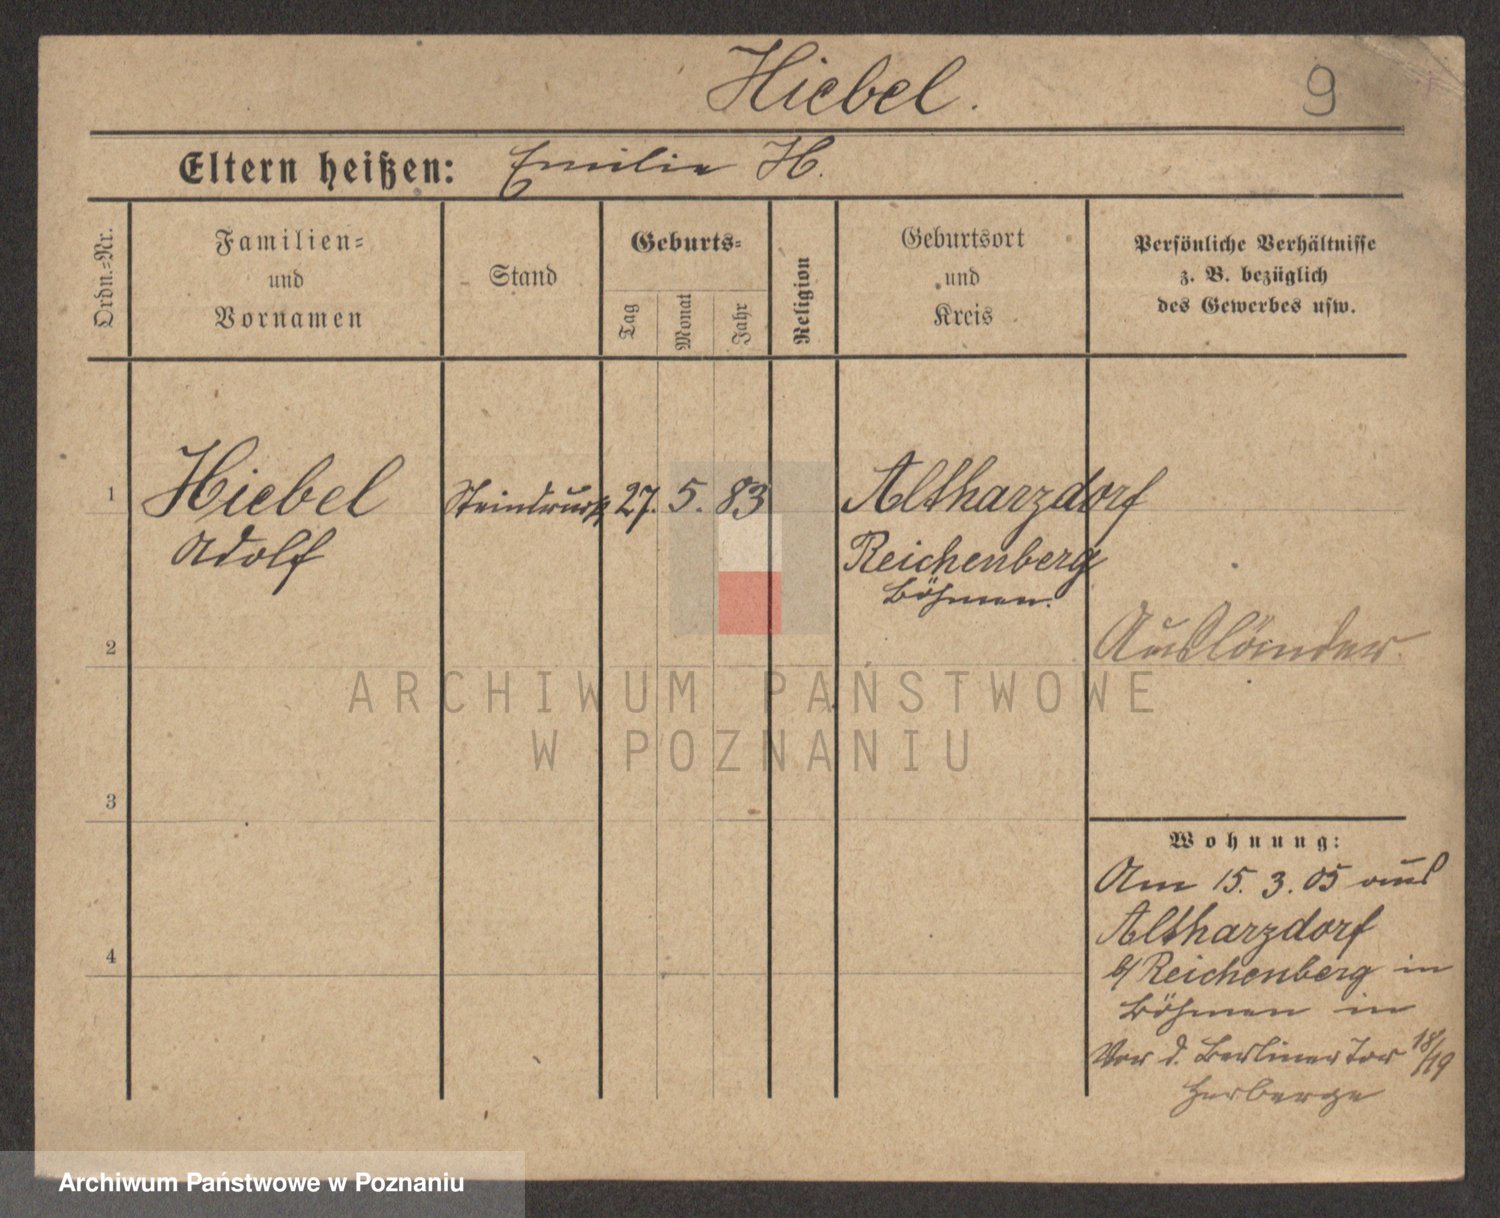 Hiebel.
9
Eltern heißen: Emilie H.
Ordn.=Nr.
Familien=
und
Vornamen
Stand
Geburts=
Tag
Monat
Jahr
Religion
Geburtsort
und
Kreis
Persönliche Verhältnisse
z. B. bezüglich
des Gewerbes usw.
1
Hiebel
Adolf
27. 5. 83
Altharzdorf
Reichenberg
Böhmen.
2
Ausländer.
ARCHIWUM PAŃSTWOWE
W POZNANIU
3
Wohnung:
Am 15. 3. 05 aus
Altharzdorf
b/ Reichenberg in
Böhmen in
4
Vor d. Berliner Tor 18/19
Herberge
Archiwum Państwowe w Poznaniu